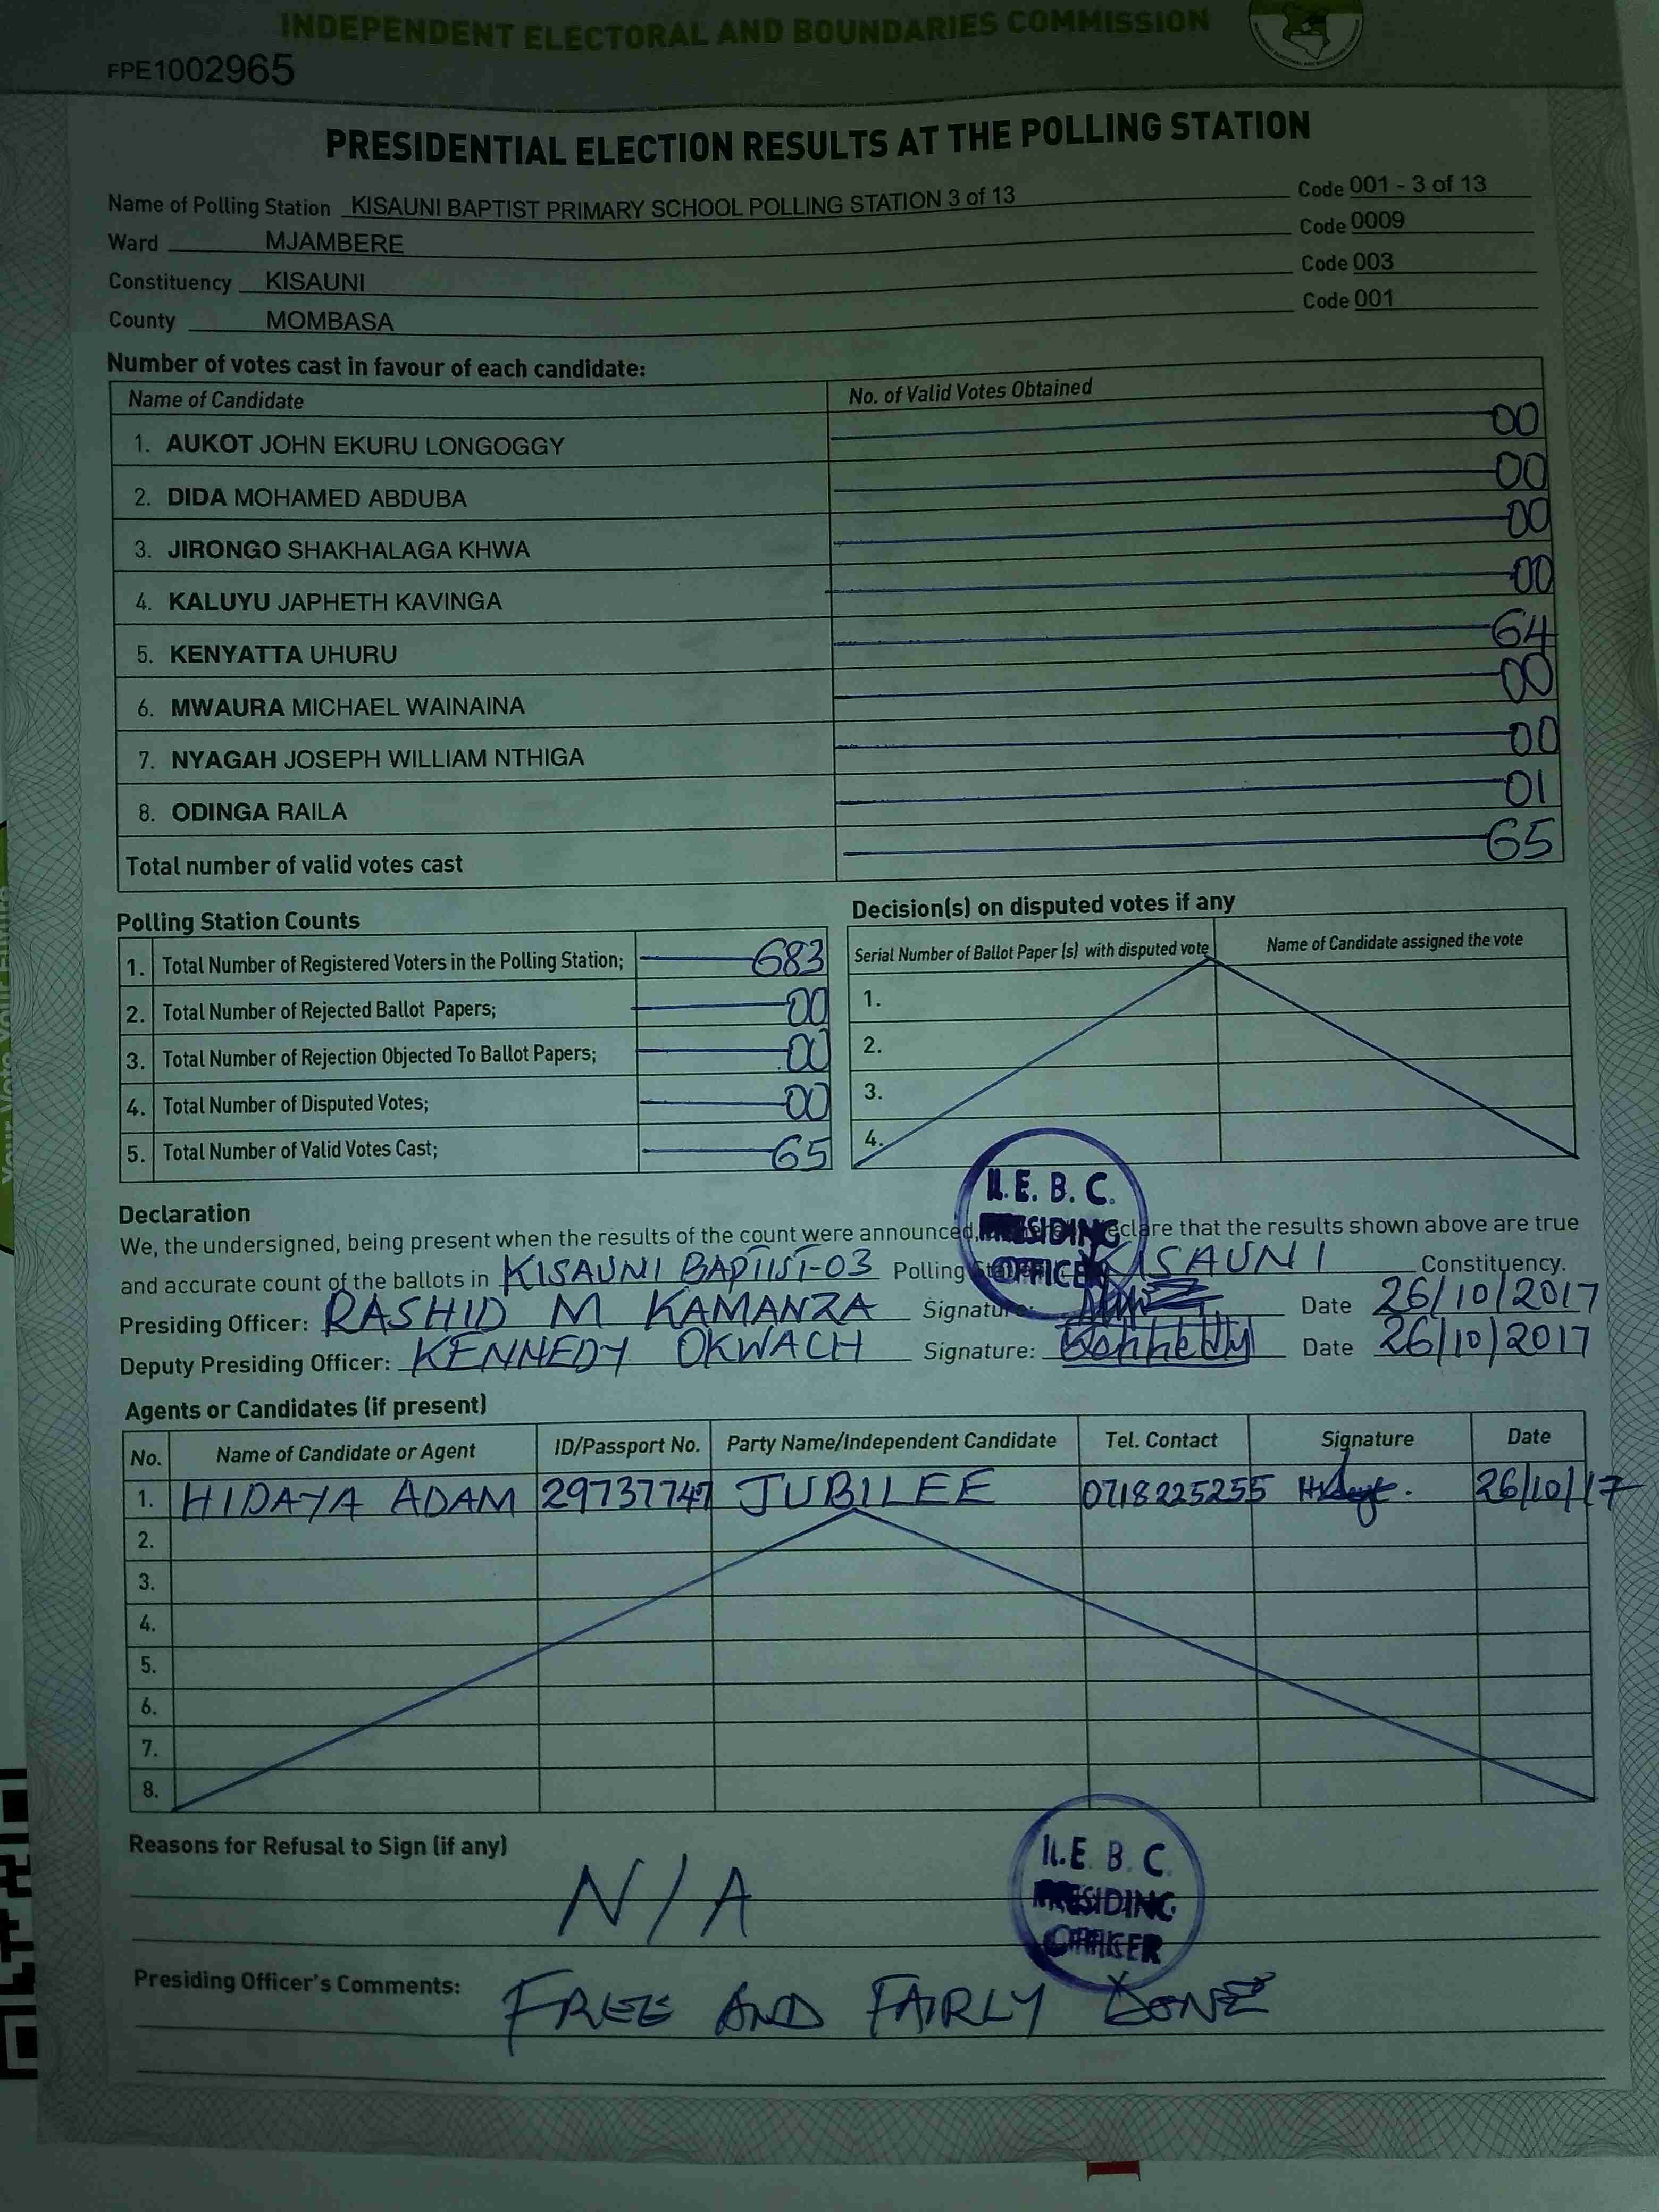 INDEPENDENT ELECTORAL AND BOUNDARIES COMMISSION
FPE1002965
PRESIDENTIAL ELECTION RESULTS AT THE POLLING STATION
Name of Polling Station KISAUNI BAPTIST PRIMARY SCHOOL POLLING STATION 3 of 13 Code 001 - 3 of 13
Ward MJAMBERE Code 0009
Constituency KISAUNI Code 003
County MOMBASA Code 001
Number of votes cast in favour of each candidate:
Name of Candidate No. of Valid Votes Obtained
1. AUKOT JOHN EKURU LONGOGGY 00
2. DIDA MOHAMED ABDUBA 00
3. JIRONGO SHAKHALAGA KHWA 00
4. KALUYU JAPHETH KAVINGA 00
5. KENYATTA UHURU 64
6. MWAURA MICHAEL WAINAINA 00
7. NYAGAH JOSEPH WILLIAM NTHIGA 00
8. ODINGA RAILA 01
Total number of valid votes cast 65
Polling Station Counts
1. Total Number of Registered Voters in the Polling Station; 683
2. Total Number of Rejected Ballot Papers; 00
3. Total Number of Rejection Objected To Ballot Papers; 00
4. Total Number of Disputed Votes; 00
5. Total Number of Valid Votes Cast; 65
Decision(s) on disputed votes if any
Serial Number of Ballot Paper (s) with disputed vote Name of Candidate assigned the vote
1.
2.
3.
4.
I.E.B.C.
PRESIDING
OFFICER
Declaration
We, the undersigned, being present when the results of the count were announced, declare that the results shown above are true
and accurate count of the ballots in KISAUNI BAPTIST-03 Polling KISAUNI Constituency.
Presiding Officer: RASHID M KAMANZA Signature: Date 26/10/2017
Deputy Presiding Officer: KENNEDY OKWACH Signature: Kennedy Date 26/10/2017
Agents or Candidates (if present)
No. Name of Candidate or Agent ID/Passport No. Party Name/Independent Candidate Tel. Contact Signature Date
1. HIDAYA ADAM 29737747 JUBILEE 0718225255 26/10/17
2.
3.
4.
5.
6.
7.
8.
Reasons for Refusal to Sign (if any)
N/A
I.E.B.C.
PRESIDING
OFFICER
Presiding Officer's Comments: FREE AND FAIRLY DONE